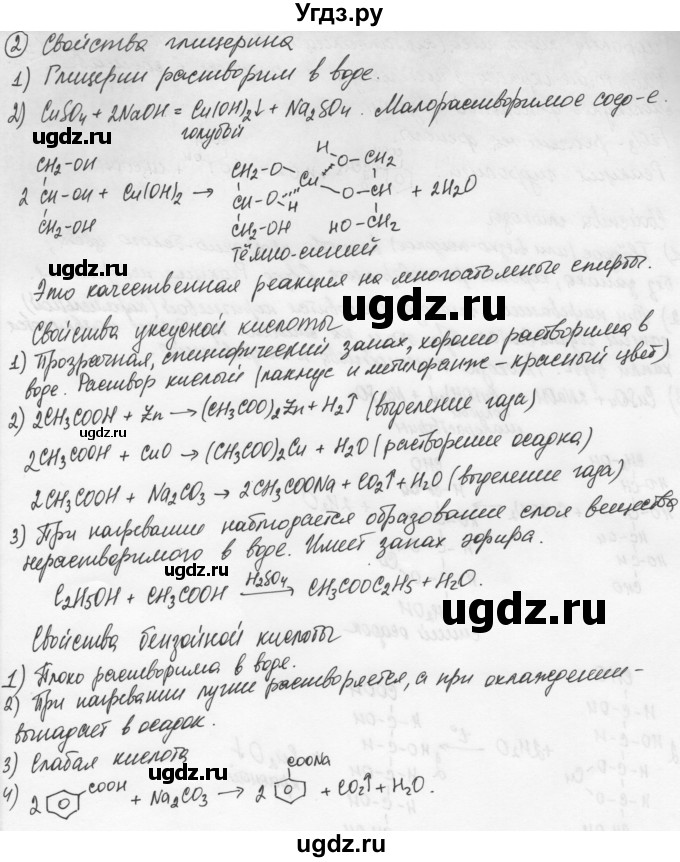 Угдз.ру
② Свойства глицерина
1) Глицерин растворим в воде.
2) CuSO4 + 2NaOH = Cu(OH)2↓ + Na2SO4. Малорастворимое соед-е.
ugdz.ru голубой
CH2-OH H O-CH2
CH2-O
2 CH-OH + Cu(OH)2 → Cu + 2H2O
CH-O O-CH
H
CH2-OH CH2-OH HO-CH2
тёмно-синий
ugdz.ru
Это качественная реакция на многоатомные спирты.
ugdz.ru
Свойства уксусной кислоты
1) Прозрачная, специфический запах, хорошо растворима в
воде. Раствор кислый (лакмус и метилоранж - красный цвет)
2) 2CH3COOH + Zn → (CH3COO)2Zn + H2↑ (выделение газа)
ugdz.ru
2CH3COOH + CuO → (CH3COO)2Cu + H2O (растворение осадка)
2CH3COOH + Na2CO3 → 2CH3COONa + CO2↑ + H2O (выделение газа)
ugdz.ru ugdz.ru
3) При нагревание наблюдается образование слоя вещества
нерастворимого в воде. Имеет запах эфира.
C2H5OH + CH3COOH H2SO4 → CH3COOC2H5 + H2O.
ugdz.ru
ugdz.ru
Свойства бензойной кислоты
1) Плохо растворима в воде.
2) При нагревании лучше растворяется, а при охлаждении -
выпадает в осадок.
ugdz.ru
3) Слабая кислота
ugdz.ru
4) 2 COOH + Na2CO3 → 2 COONa + CO2↑ + H2O.
ugdz.ru ugdz.ru